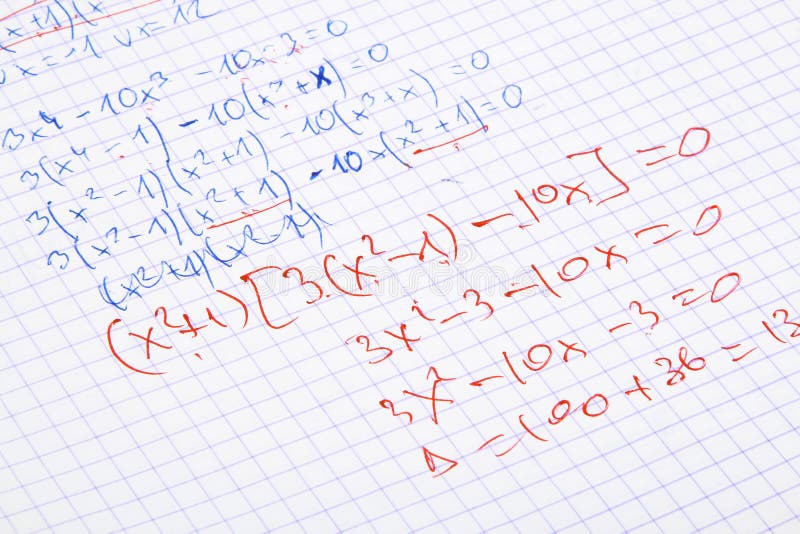 (x+1)(x
x=-1 ∨ x=12
3x⁴ - 10x³ - 10x - 3 = 0
3(x⁴ - 1) - 10(x³ + x) = 0
3(x² - 1)(x² + 1) - 10(x³ + x) = 0
3(x² - 1)(x² + 1) - 10x(x² + 1) = 0
(x²+1)(x²-1)
(x²+1)[3(x² - 1) - 10x] = 0
3x² - 3 - 10x = 0
3x² - 10x - 3 = 0
Δ = 100 + 36 = 13